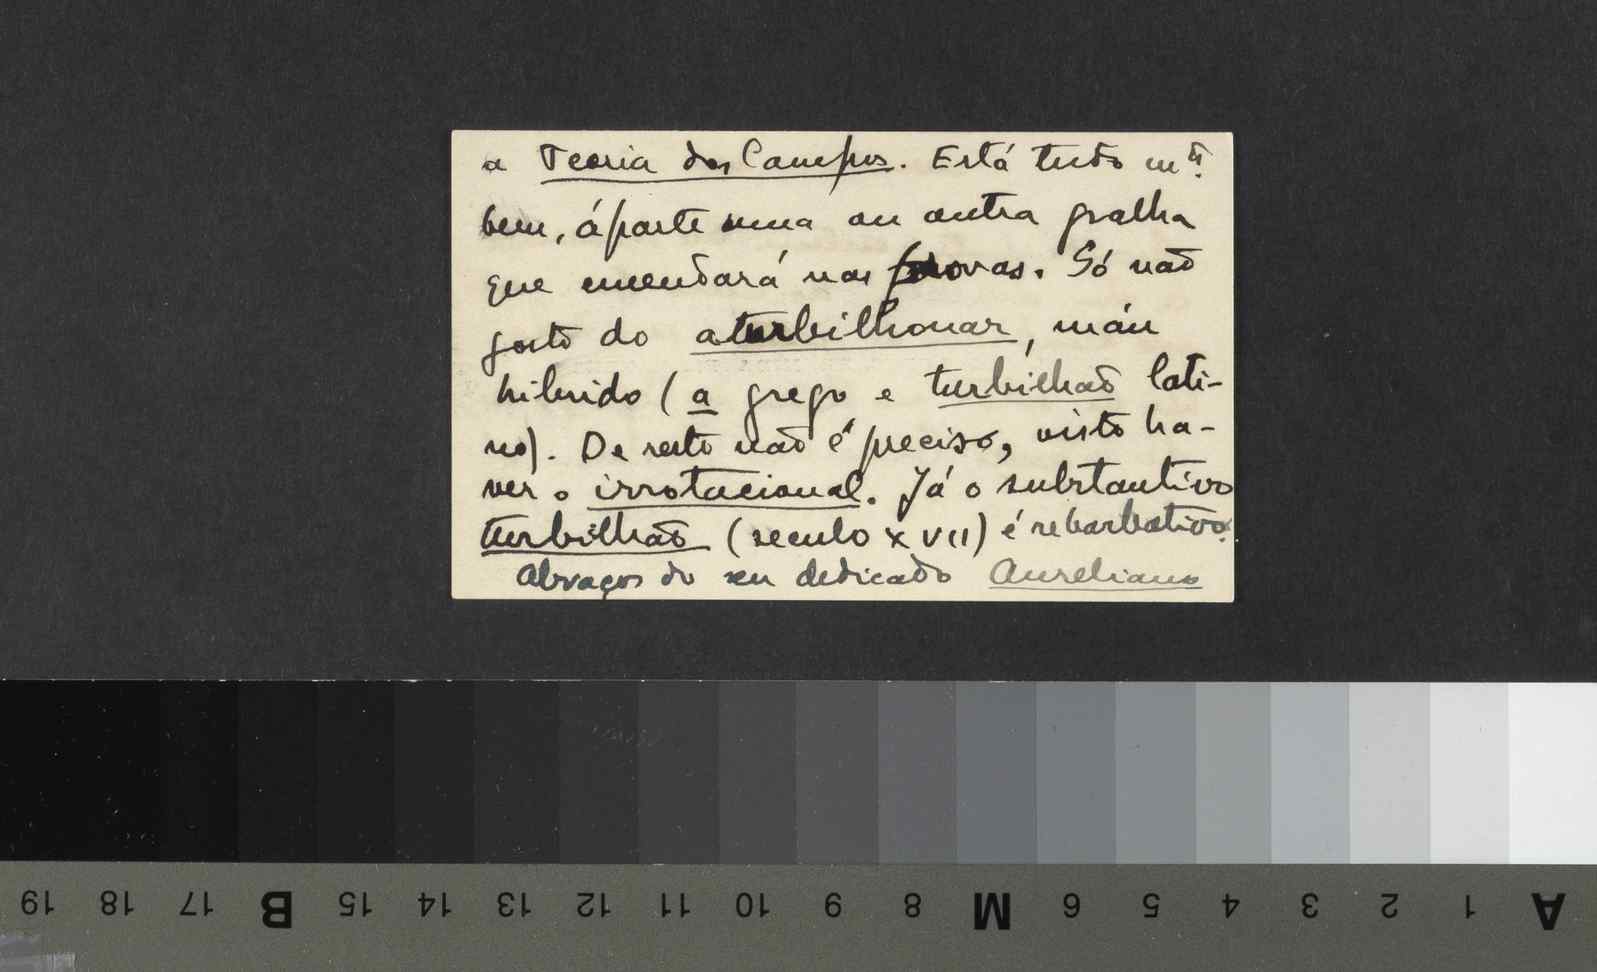 a Teoria dos Campos. Está tudo mᵗᵒ
bem, áparte uma ou outra gralha
que emendará nas provas. Só não
gosto do aturbilhonar, máu
hibrido (a grego e turbilhão lati-
no). De resto não é preciso, visto ha-
ver o irrotacional. Já o substantivo
turbilhão (seculo XVII) é rebarbativo.
Abraços do seu dedicado Aureliano
19 18 17 B 15 14 13 12 11 10 9 8 M 6 5 4 3 2 1 A